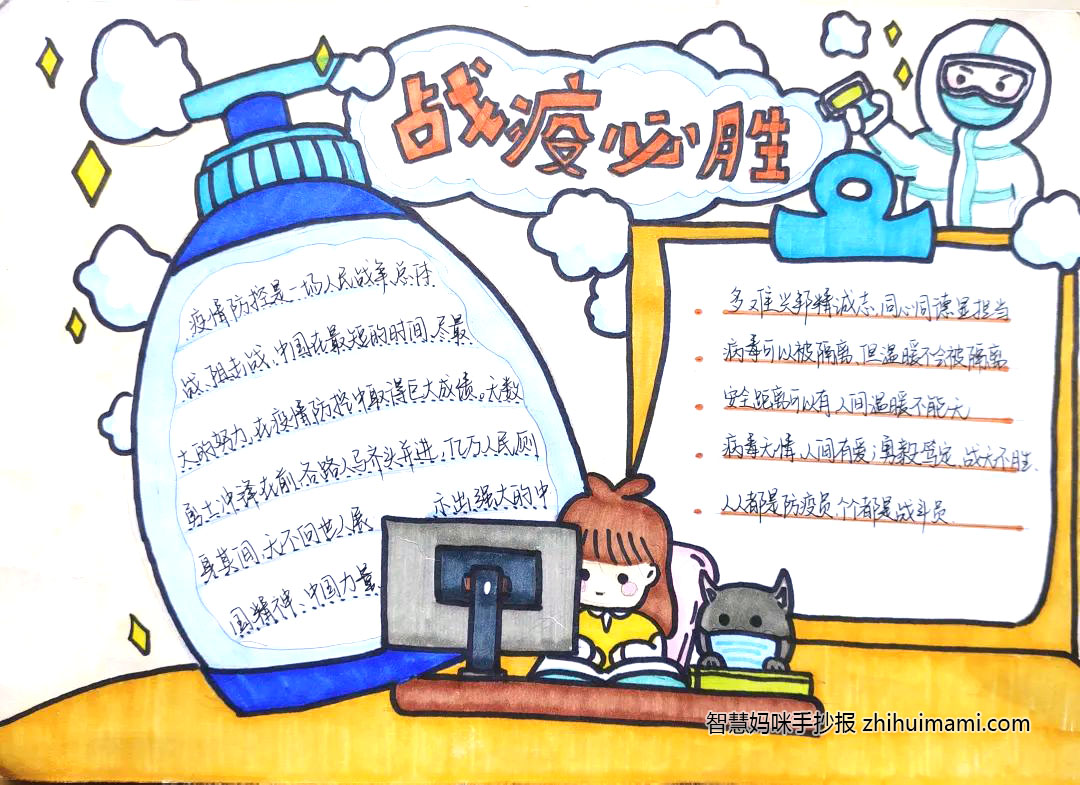 战疫必胜
疫情防控是一场人民战争总体
战、阻击战、中国在最短的时间、尽最
大的努力,在疫情防控中取得巨大成绩。无数
勇士冲锋在前,各路人马齐头并进,亿万人民厕
身其间,无不向世人展 示出强大的中
国精神、中国力量.
多难兴邦精诚志,同心同德显担当
病毒可以被隔离、但温暖不会被隔离
安全距离可以有人间温暖不能无
病毒无情,人间有爱;勇毅笃定、战无不胜.
人人都是防疫员、个个都是战斗员.
智慧妈咪手抄报 zhihuimami.com